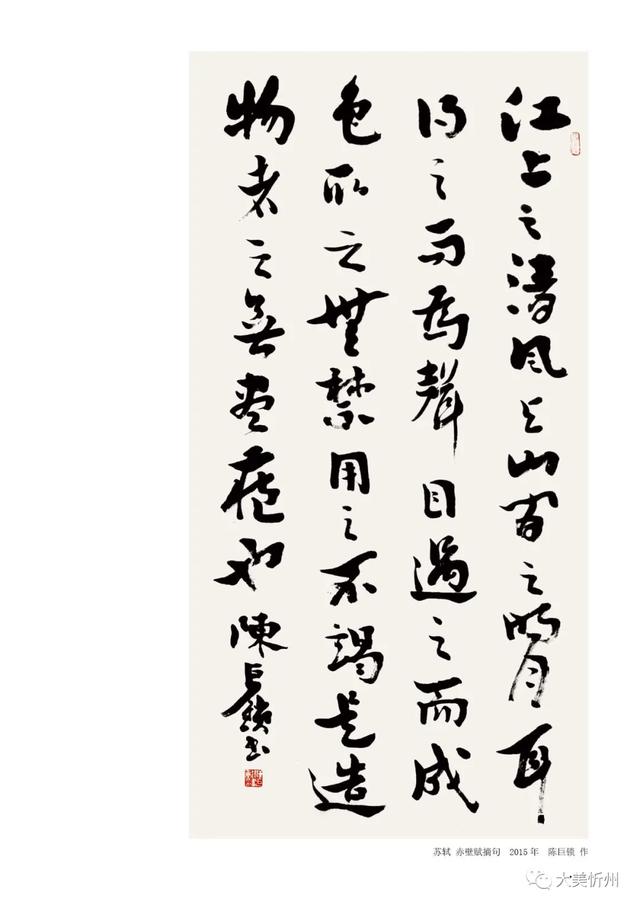 江上之清風与山間之明月耳
得之而為聲目過之而成
色取之無禁用之不竭是造
物者之無盡藏也 陳巨鎖書
苏轼 赤壁赋摘句 2015年 陈巨锁 作
大美忻州